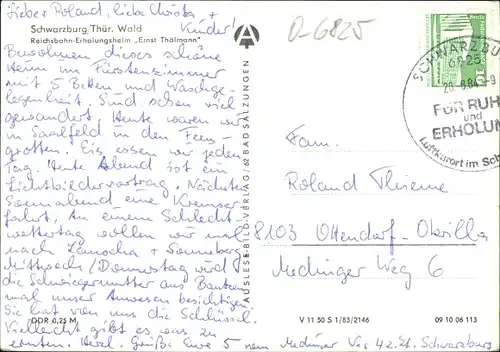 Lieber Roland, liebe Christa +
Kinder!
Schwarzburg/Thür. Wald
Reichsbahn-Erholungsheim „Ernst Thälmann"
Bewohnen dieses schöne
Heim im Fürstenzimmer
mit 5 Betten und Waschge-
legenheit. Sind schon viel
gewandert. Heute waren wir
in Saalfeld in den Feen-
grotten. Eis essen wir jeden
Tag. Heute Abend ist ein
Lichtbildervortrag. Nächsten
Sonnabend eine Kremser-
fahrt. An einem Schlecht-
wettertag wollen wir mal
nach Lauscha + Sonneberg.
Mittwoch/Donnerstag wird
die Schwiegermutter aus Bautzen
mal unser Anwesen besichtigen.
Sie hat von uns die Schlüssel.
Vielleicht gibt es was zu
ernten. Herzl. Grüße Eure 5
DDR 0,25 M
AUSLESE-BILD-VERLAG / 62 BAD SALZUNGEN
D-6825
SCHWARZBU
6825
20.-9.84-9
FÜR RUH
und
ERHOLUN
Luftkurort im Sch
Fam.
Roland Thieme
8103 Ottendorf-Okrilla
Medinger Weg 6
V 11 50 S 1/83/2146
09 10 06 113
42. Schwarzburg